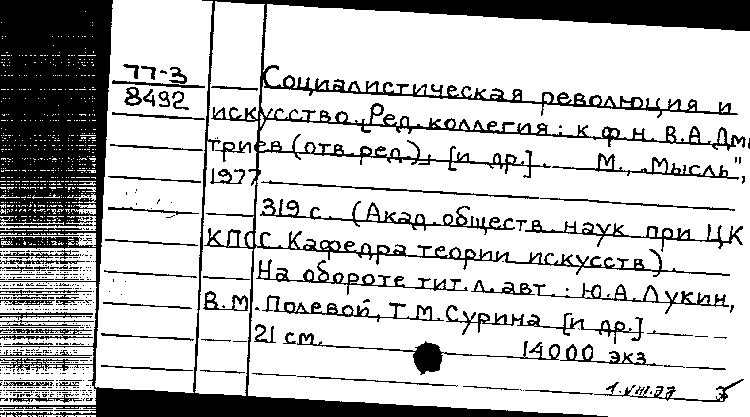 77-3
8492
Социалистическая революция и
искусство. [Ред. коллегия: к.ф.н. В.А.Дми
триев (отв. ред.), [и др.]. М., „Мысль",
1977.
319 с. (Акад. обществ. наук при ЦК
КПСС. Кафедра теории искусств).
На обороте тит. л. авт.: Ю.А.Лукин,
В.М.Полевой, Т.М.Сурина [и др.].
21 см. 14000 экз.
1.VIII.77